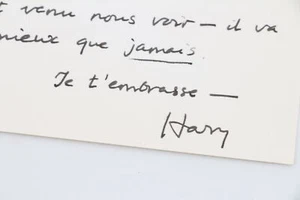 t venu nous voir – il va
mieux que jamais.
Je t'embrasse –
Hary